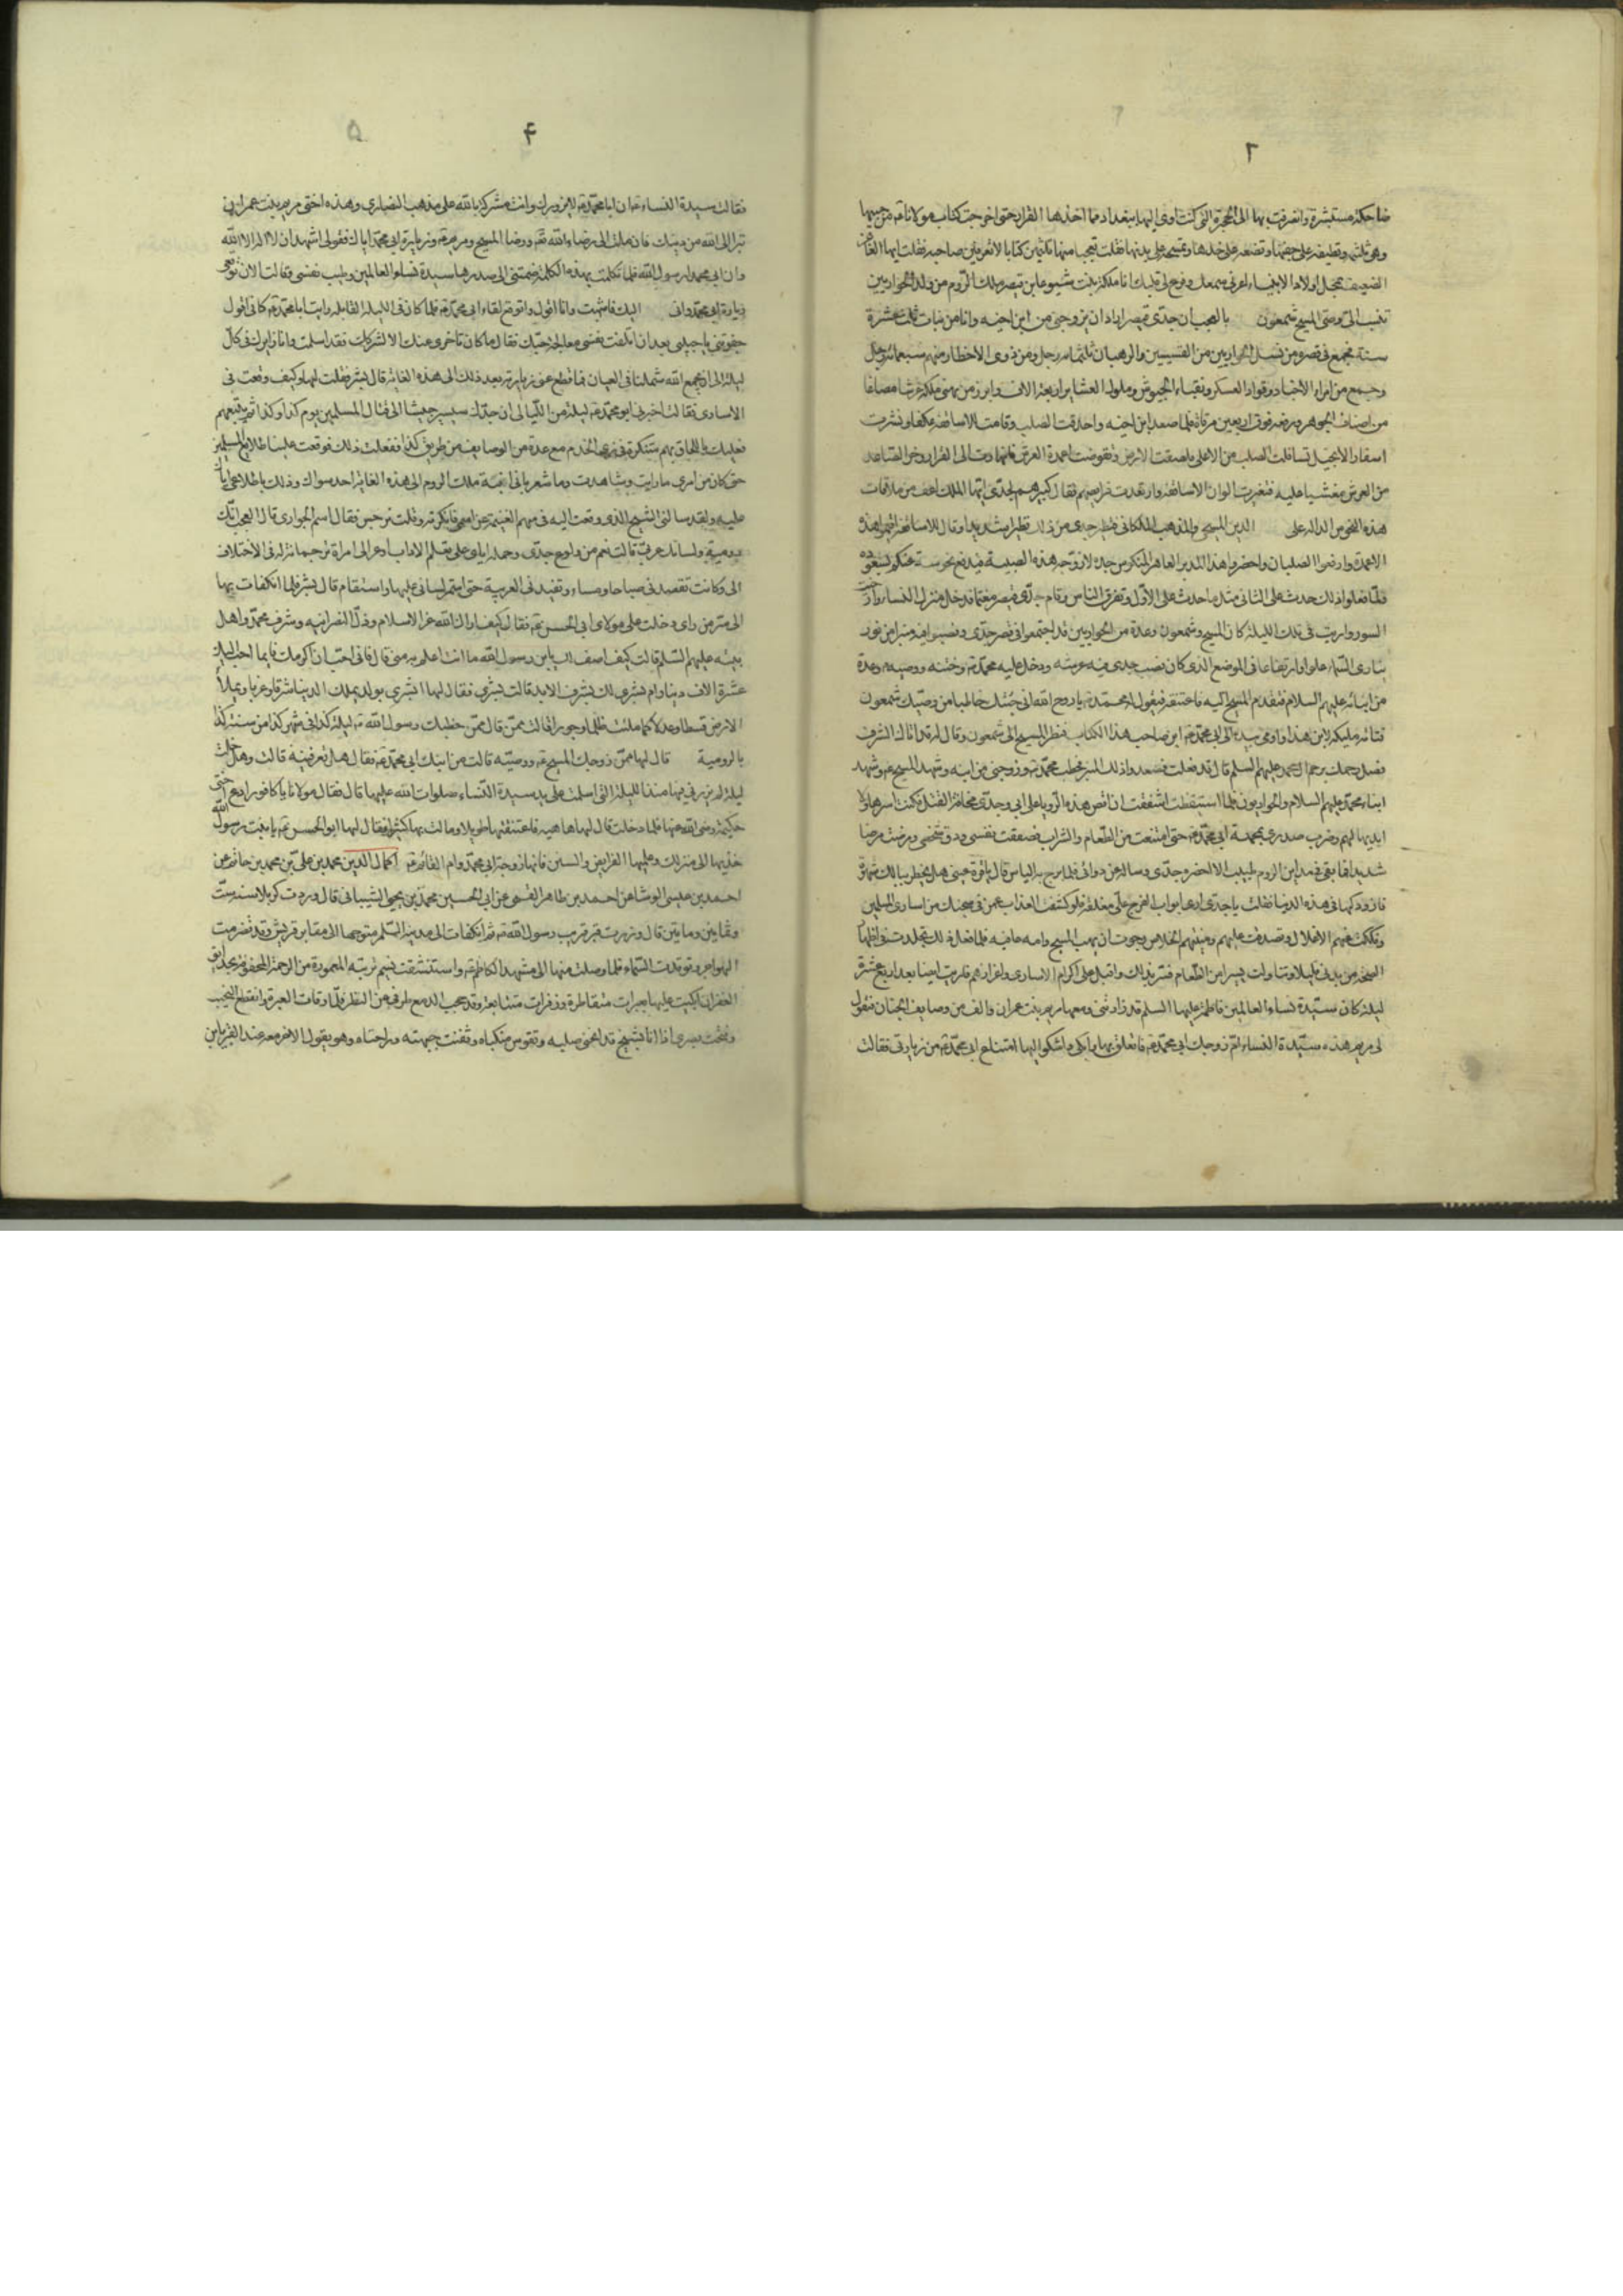 ٢
ضاحكة مستبشرة وانصرفت بها الى الحجرة التي كنت اوي اليها ببغداد فما اخذها القرار حتى اخرجت كتاب مولانا من جيبها
وهي تلثمه وتطبقه على جفنها وتضعه على خدها وتمسحه على بدنها فقلت تعجبا منها تلثمين كتابا لا تعرفين صاحبه فقالت ايها العاجز
الضعيف بمحل اولاد الانبياء اعرني سمعك وفرغ لي قلبك انا مليكة بنت يشوعا بن قيصر ملك الروم من ولد الحواريين
تنسب الى وصي المسيح شمعون بالعجب ان جدي قيصر اراد ان يزوجني من ابن اخيه وانا من بنات ثلث عشرة
سنة فجمع في قصره من نسل الحواريين من القسيسين والرهبان ثلثمائة رجل ومن ذوي الاخطار منهم سبعمائة رجل
وجمع من امراء الاجناد وقواد العسكر ونقباء الجيوش وملوك العشاير اربعة الاف وابرز من بهي ملكه عرشا مصاغا
من اصناف الجوهر ورفعه فوق اربعين مرقاة فلما صعد ابن اخيه واحدقت الصلب وقامت الاساقفة عكفا ونشرت
اسفار الانجيل تسافلت الصلب من الاعلى فلصقت الارض وتقوضت اعمدة العرش فانهارت الى القرار وخر الصاعد
من العرش مغشيا عليه فتغيرت الوان الاساقفة وارتعدت فرايصهم فقال كبيرهم لجدي ايها الملك اعفنا من ملاقات
هذه النحوس الدالة على الدين المسيحي والمذهب الملكاني فتطير جدي من ذلك تطيرا شديدا وقال للاساقفة اقيموا هذه
الاعمدة وارفعوا الصلبان واحضروا هذا المدبر العاهر المنكوس جده لازوجه هذه الصبية فيدفع نحوسه عنكم بسعوده
فلما فعلوا ذلك حدث على الثاني مثل ما حدث على الاول وتفرق الناس وقام جدي قيصر مغتما فدخل منزل النساء وارخيت
الستور واريت في تلك الليلة كان المسيح وشمعون وعدة من الحواريين قد اجتمعوا في قصر جدي ونصبوا فيه منبرا من نور
يباري السماء علوا وارتفاعا في الموضع الذي كان نصب جدي فيه عرشه ودخل عليه محمد وختنه ووصيه وعدة
من ابنائه عليهم السلام فتقدم المسيح اليه فاعتنقه فيقول له محمد يا روح الله اني جئتك خاطبا من وصيك شمعون
فتاته مليكة لابني هذا واومى بيده الى ابي محمد ابن صاحب هذا الكتاب فنظر المسيح الى شمعون وقال له قد اتاك الشرف
فصل رحمك برحم ال محمد عليهم السلم قال قد فعلت فصعد ذلك المنبر فخطب محمد وزوجني من ابنه وشهد المسيح وشهد
ابناء محمد عليهم السلام والحواريون فلما استيقظت اشفقت ان اقص هذه الرؤيا على ابي وجدي مخافة القتل فكنت اسرها ولا
ابديها لهم وضرب صدري بمحبة ابي محمد حتى امتنعت من الطعام والشراب فضعفت نفسي ودق شخصي ومرضت مرضا
شديدا فما بقي في مداين الروم طبيب الا احضره جدي وساله عن دوائي فلما برح به الياس قال يا قرة عيني هل يخطر ببالك شهوة
فازودكها في هذه الدنيا فقلت يا جدي ارى ابواب الفرج علي مغلقة فلو كشفت العذاب عمن في سجنك من اسارى المسلمين
وفككت عنهم الاغلال وتصدقت عليهم ومنيتهم الخلاص رجوت ان يهب المسيح وامه عافية فلما فعل ذلك تجلدت في اظهار
الصحة من بدني قليلا وتناولت يسيرا من الطعام فسر بذلك واقبل على اكرام الاسارى واعزازهم فاريت ايضا بعد اربع عشرة
ليلة كان سيدة نساء العالمين فاطمة عليها السلم قد زارتني ومعها مريم بنت عمران والف من وصايف الجنان فتقول
لي مريم هذه سيدة النساء ام زوجك ابي محمد فاتعلق بها وابكي واشكوا اليها امتناع ابي محمد من زيارتي فقالت
۴ ۵
فقالت سيدة النساء ان ابا محمد لا يزورك وانت مشركة بالله على مذهب النصارى وهذه اختي مريم بنت عمران
تبرا الى الله من دينك فان ملت الى رضاء الله ورضا المسيح ومريم وزيارة ابي محمد اياك فقولي اشهد ان لا اله الا الله
وان ابي محمدا رسول الله فلما تكلمت بهذه الكلمة ضمتني الى صدرها سيدة نساء العالمين وطيب نفسي وقالت الان توقعي
زيارة ابي محمد واني اليك فانتبهت وانا اقول واتوقع لقاء ابي محمد فلما كان في الليلة القابلة رايت ابا محمد كاني اقول
جفوتني يا حبيبي بعد ان اتلفت نفسي معالجة حبك فقال ما كان تاخري عنك الا لشركك فقد اسلمت وانا زايرك في كل
ليلة الى ان يجمع الله شملنا في العيان فما قطع عني زيارته بعد ذلك الى هذه الغاية قال بشر فقلت لها وكيف وقعت في
الاسارى فقالت اخبرني ابو محمد ليلة من الليالي ان جدك سيسير جيشا الى قتال المسلمين يوم كذا وكذا ثم يتبعهم
فعليك باللحاق بهم متنكرة في زي الخدم مع عدة من الوصايف من طريق كذا ففعلت ذلك فوقعت علينا طلايع المسلمين
حتى كان من امري ما رايت وشاهدت وما شعر باني ابنة ملك الروم الى هذه الغاية احد سواك وذلك باطلاعي اياك
عليه ولقد سالني الشيخ الذي وقعت اليه في سهم الغنيمة عن اسمي فانكرته وقلت نرجس فقال اسم الجواري قال العجب انك
رومية ولسانك عربي قالت نعم من ولوع جدي وحمله اياي على تعلم الاداب ادعز الى امراة ترجمانة له في الاختلاف
الي وكانت تقصدني صباحا ومساء وتفيدني العربية حتى استمر لساني عليها واستقام قال بشر فلما انكفات بها
الى سر من راى دخلت على مولاي ابي الحسن فقال كيف اراك الله عز الاسلام وذل النصرانية وشرف محمد واهل
بيته عليهم السلم قالت كيف اصف لك يا بن رسول الله ما انت اعلم به مني قال فاني احب ان اكرمك فايما احب اليك
عشرة الاف دينار ام بشرى لك بشرف الابد قالت بشرى فقال لها ابشري بولد يملك الدنيا شرقا وغربا ويملأ
الارض قسطا وعدلا كما ملئت ظلما وجورا قالت ممن قال ممن خطبك رسول الله ليلة كذا في شهر كذا من سنة كذا
بالرومية قال لها ممن زوجك المسيح ووصيه قالت من ابنك ابي محمد فقال هل تعرفينه قالت وهل خلت
ليلة لم يزرني فيها منذ الليلة التي اسلمت على يد سيدة النساء صلوات الله عليها قال فقال مولانا يا كافور ادع اختي
حكيمة رضي الله عنها فلما دخلت قال لها ها هيه فاعتنقتها طويلا ومالت بها كثيرا فقال لها ابو الحسن يا بنت رسول الله
خذيها الى منزلك وعليها الفرايض والسنن فانها زوجة ابي محمد وام القائم اكمال الدين محمد بن علي بن محمد بن حاتم عن
احمد بن عيسى الوشا عن احمد بن طاهر القمي عن ابي الحسين محمد بن يحيى الشيباني قال وردت كربلا سنة ست
وثمانين ومايتين قال وزرت قبر غريب رسول الله ثم انكفات الى مدينة السلم متوجها الى مقابر قريش وقد تضرمت
الهواجر وتوقدت السماء فلما وصلت منها الى مشهد الكاظم واستنشقت نسيم تربته المغمورة من الرحمة المحفوفة بحدايق
الغفران اكببت عليها بعبرات متقاطرة وزفرات متتابعة وقد حجب الدمع طرفي عن النظر فلما رقات العبرة وانقطع النحيب
وفتحت بصري اذا انا بشيخ قد انحنى صلبه وتقوس منكباه وثفنت جبهته وراحتاه وهو يقول لاخر معه عند القبر يابن